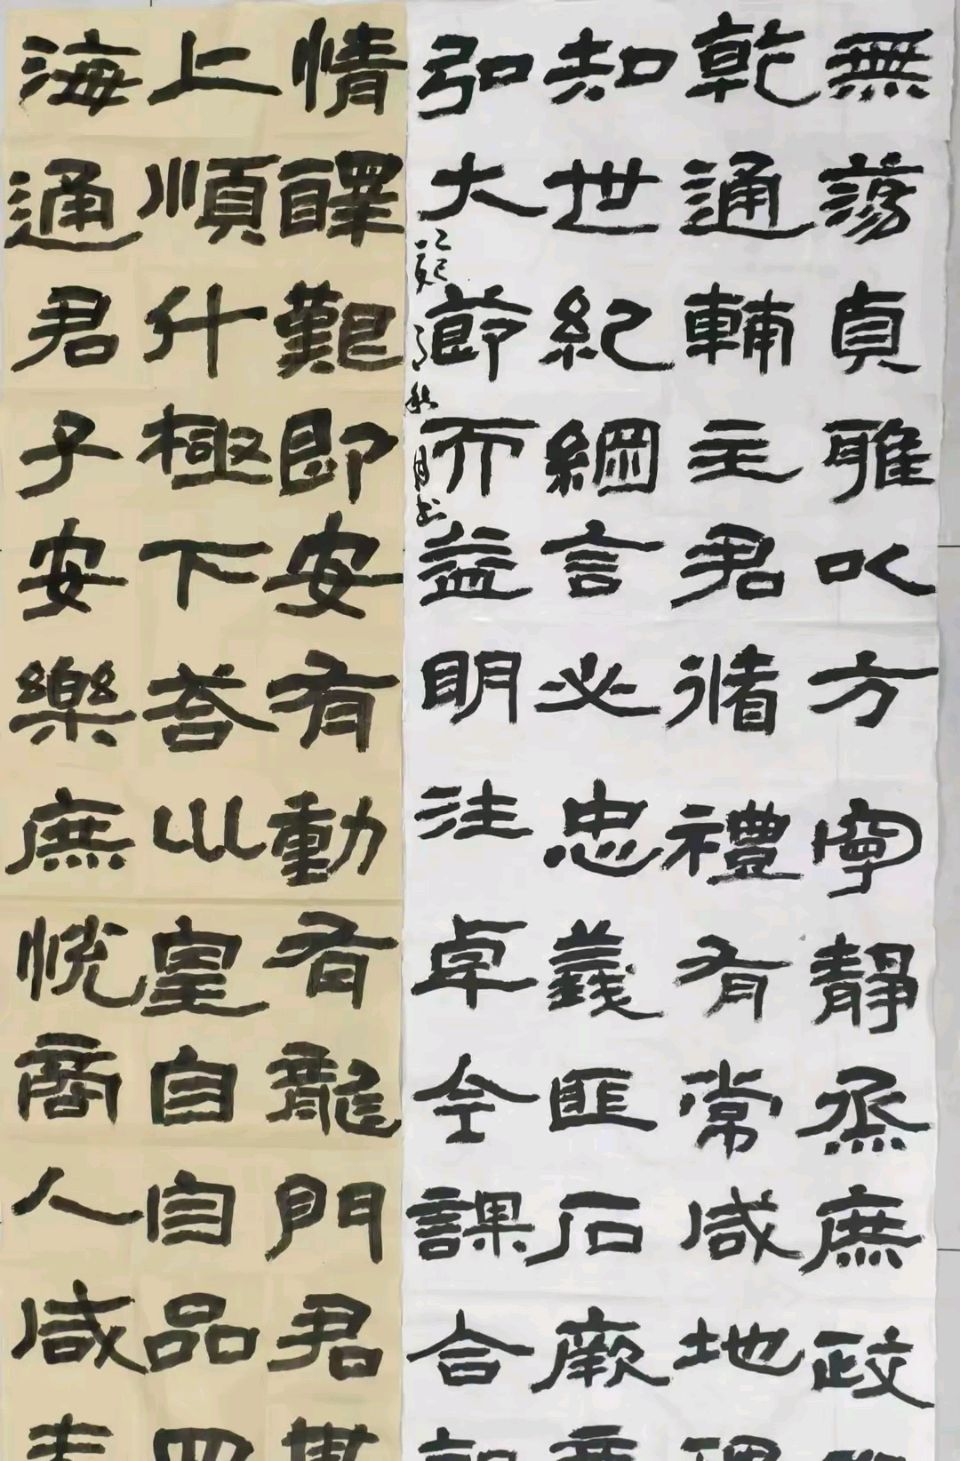 無蕩貞雅以方寧靜烝庶政
乾通輔主君循禮有常咸地理
知世紀綱言必忠義匪石厥章
弘大節而益明注卓今課合謨
己亥 秋月書
情釋艱即安有動有龍門君其
上順什極下荅山皇自自品四
海通君子安樂庶悅商人咸憙